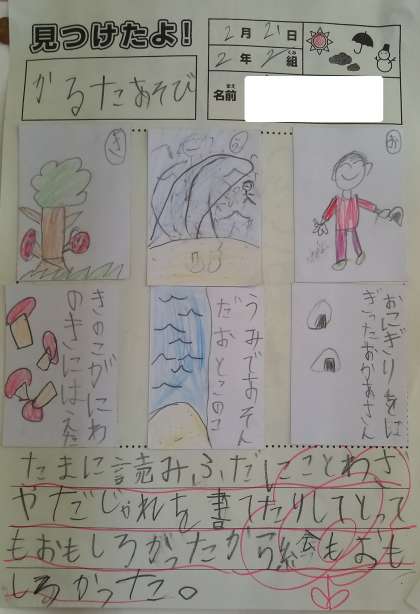 見つけたよ!
2月21日
2年2組
くみ
名前
なまえ
かるたあそび
き
う
お
きのこがにわ
のきにはえ
うみであそん
だおとこのこ
おにぎりをに
ぎったおかあさん
たまに読みふだにことわざ
やだじゃれを書てたりしてとって
もおもしろかったから絵もおも
しろかった。